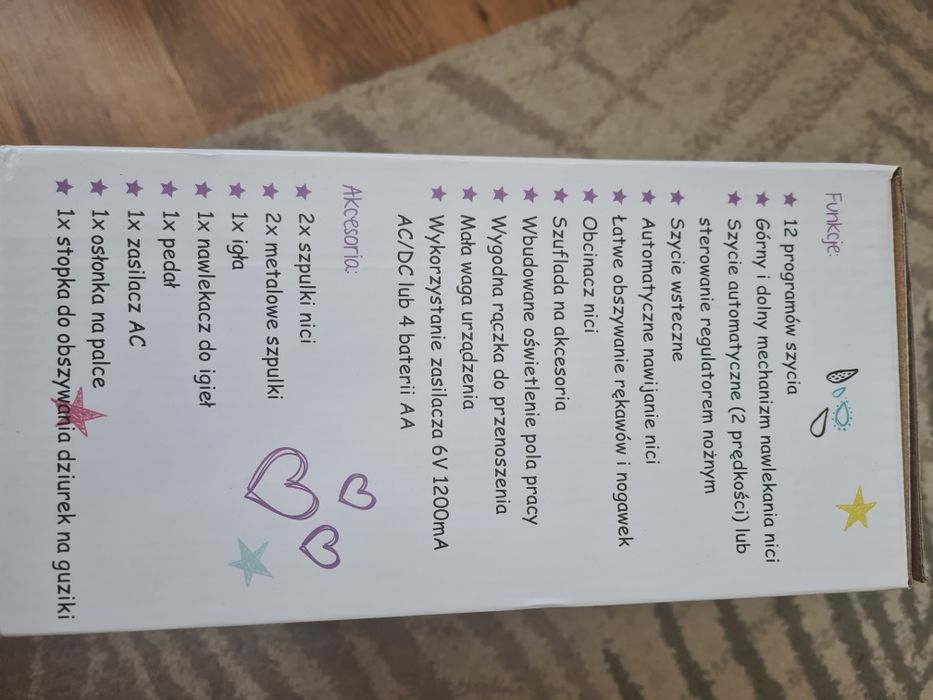 Funkcje:
12 programów szycia
Górny i dolny mechanizm nawlekania nici
Szycie automatyczne (2 prędkości) lub
sterowanie regulatorem nożnym
Szycie wsteczne
Automatyczne nawijanie nici
Łatwe obszywanie rękawów i nogawek
Obcinacz nici
Szuflada na akcesoria
Wbudowane oświetlenie pola pracy
Wygodna rączka do przenoszenia
Mała waga urządzenia
Wykorzystanie zasilacza 6V 1200mA
AC/DC lub 4 baterii AA
Akcesoria:
2x szpulki nici
2x metalowe szpulki
1x igła
1x nawlekacz do igieł
1x pedał
1x zasilacz AC
1x osłonka na palce
1x stopka do obszywania dziurek na guziki